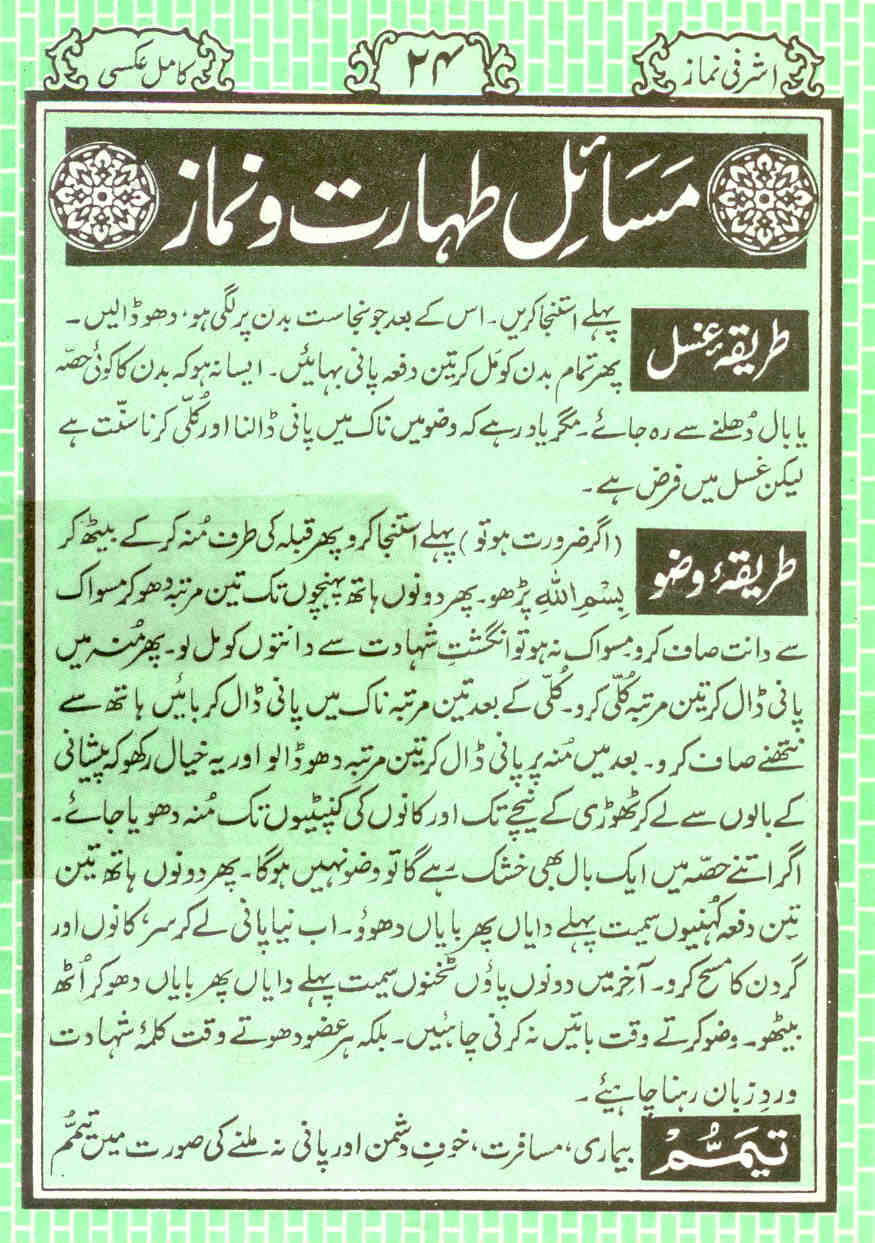 اشرفی نماز
۲۴
کامل عکسی
مَسَائلِ طہارت و نماز
طریقۂ غسل
پہلے استنجا کریں۔ اس کے بعد جو نجاست بدن پر لگی ہو، دھو ڈالیں۔
پھر تمام بدن کو مَل کر تین دفعہ پانی بہائیں۔ ایسا نہ ہو کہ بدن کا کوئی حصّہ
یا بال دُھلنے سے رہ جائے۔ مگر یاد رہے کہ وضو میں ناک میں پانی ڈالنا اور کُلّی کرنا سنّت ہے
لیکن غسل میں فرض ہے۔
طریقۂ وضو
(اگر ضرورت ہو تو) پہلے استنجا کرو پھر قبلہ کی طرف مُنہ کر کے بیٹھ کر
بِسْمِ اللهِ پڑھو۔ پھر دونوں ہاتھ پہنچوں تک تین مرتبہ دھو کر مسواک
سے دانت صاف کرو مسواک نہ ہو تو انگشتِ شہادت سے دانتوں کو مل لو۔ پھر مُنہ میں
پانی ڈال کر تین مرتبہ کُلّی کرو۔ کُلّی کے بعد تین مرتبہ ناک میں پانی ڈال کر بائیں ہاتھ سے
نتھنے صاف کرو۔ بعد میں مُنہ پر پانی ڈال کر تین مرتبہ دھو ڈالو اور یہ خیال رکھو کہ پیشانی
کے بالوں سے لے کر ٹھوڑی کے نیچے تک اور کانوں کی کنپٹیوں تک مُنہ دھویا جائے۔
اگر اتنے حصّہ میں ایک بال بھی خشک رہے گا تو وضو نہیں ہوگا۔ پھر دونوں ہاتھ تین
تین دفعہ کُہنیوں سمیت پہلے دایاں پھر بایاں دھوؤ۔ اب نیا پانی لے کر سر، کانوں اور
گردن کا مسح کرو۔ آخر میں دونوں پاؤں ٹخنوں سمیت پہلے دایاں پھر بایاں دھو کر اُٹھ
بیٹھو۔ وضو کرتے وقت باتیں نہ کرنی چاہئیں۔ بلکہ ہر عضو دھوتے وقت کلمۂ شہادت
وردِ زبان رہنا چاہیئے۔
تیمَّمْ
بیماری، مسافرت، خوفِ دشمن اور پانی نہ ملنے کی صورت میں تیمّم